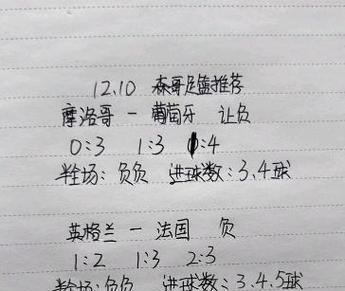 12.10 森哥足篮推荐
摩洛哥 - 葡萄牙 让负
0:3 1:3 0:4
半全场: 负负 进球数: 3.4球
英格兰 - 法国 负
1:2 1:3 2:3
半全场: 负负 进球数: 3.4.5球